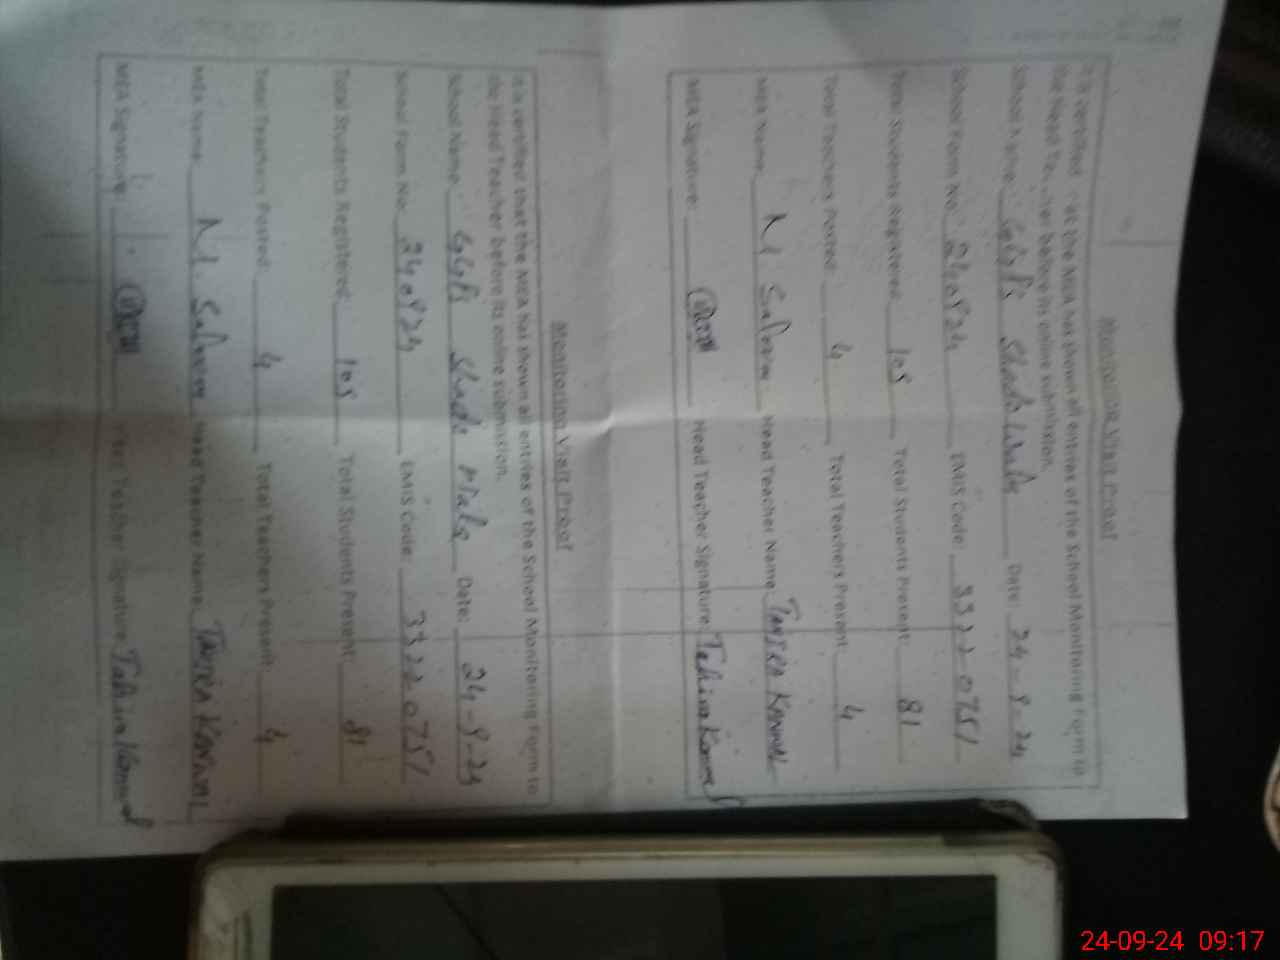 Monitoring Visit Proof
It is certified that the MEA has shown all entries of the School Monitoring Form to
the Head Teacher before its online submission.
School Name: GGPS Date: 24-9-24
School Form No. 240924 EMIS Code: 3322-0751
Total Students Registered: 105 Total Students Present 81
Total Teachers Posted: 4 Total Teachers Present 4
MEA Name M Saleem Head Teacher Name TAHIRA KANWAL
MEA Signature: Head Teacher Signature: Tahira Kanwal
Monitoring Visit Proof
It is certified that the MEA has shown all entries of the School Monitoring Form to
the Head Teacher before its online submission.
School Name GGPS Date: 24-9-24
School Form No. 240924 EMIS Code: 3322-0751
Total Students Registered: 105 Total Students Present 81
Total Teachers Posted: 4 Total Teachers Present 4
MEA Name M Saleem Head Teacher Name TAHIRA KANWAL
MEA Signature: Head Teacher Signature Tahira Kanwal
24-09-24 09:17